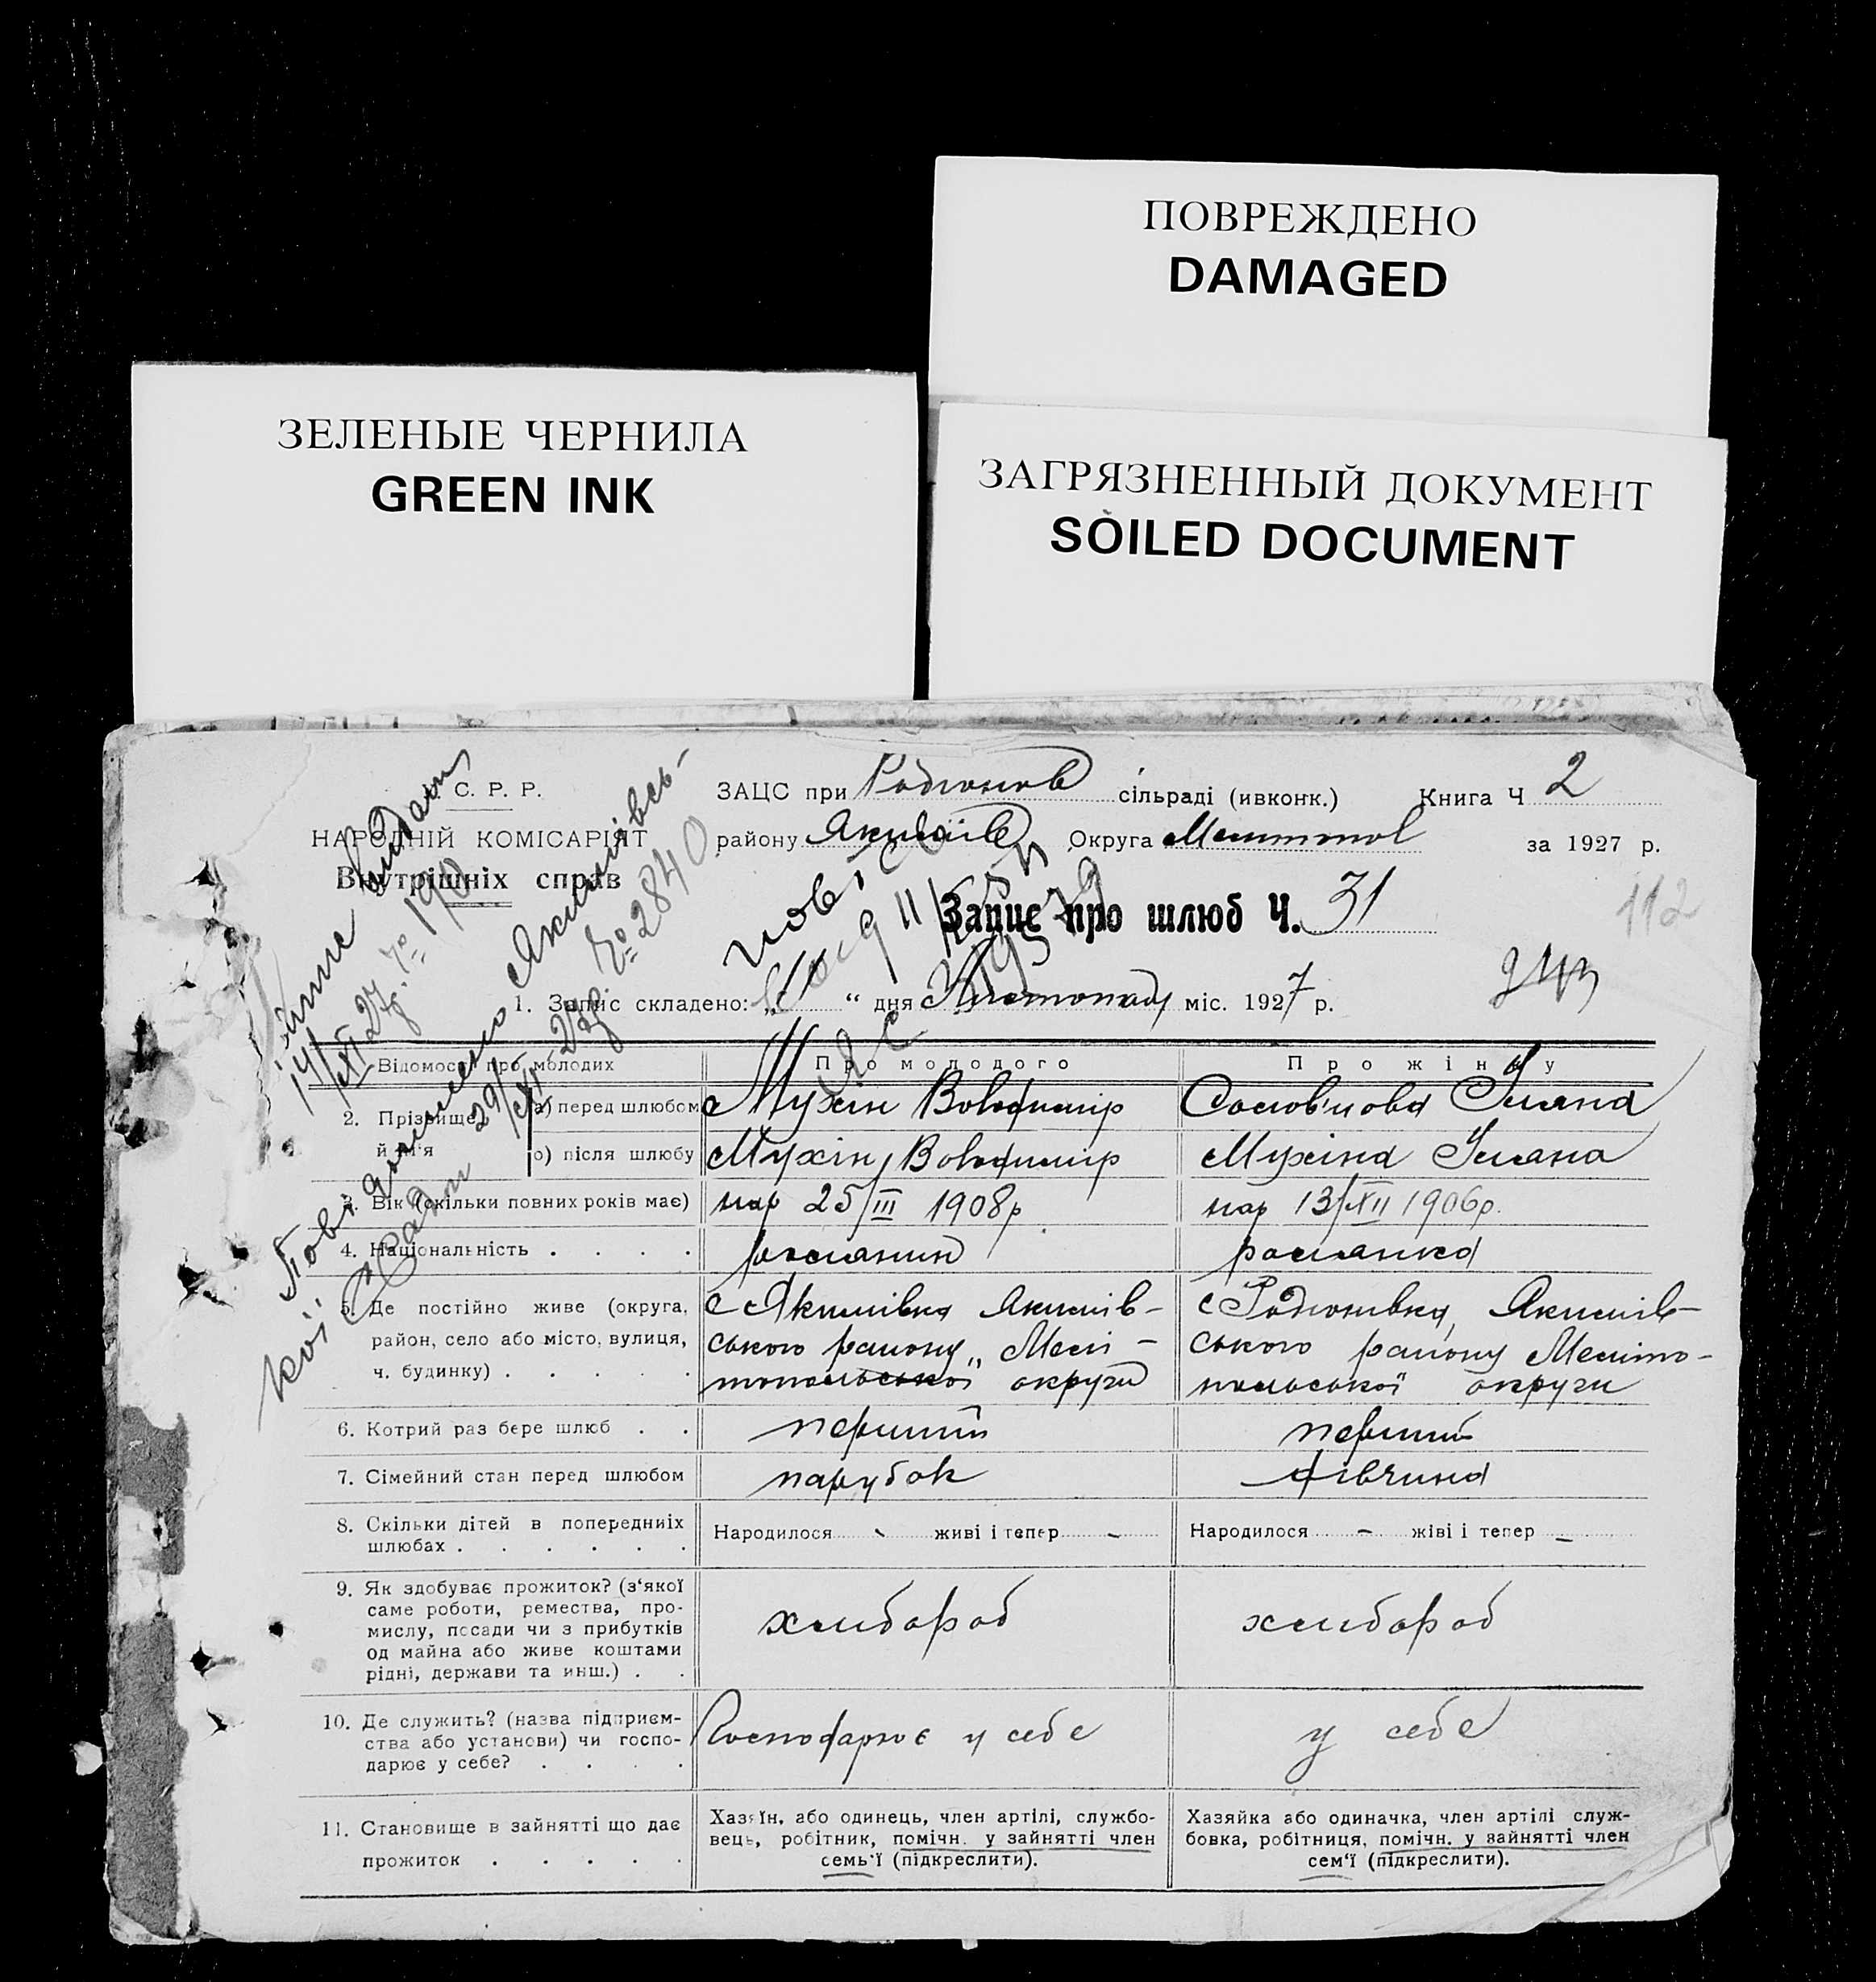 ПОВРЕЖДЕНО
DAMAGED
ЗЕЛЕНЫЕ ЧЕРНИЛА
GREEN INK
ЗАГРЯЗНЕННЫЙ ДОКУМЕНТ
SOILED DOCUMENT
С. Р. Р.
НАРОДНІЙ КОМІСАРІЯТ
Внутрішніх справ
ЗАЦС при Родіонов сільраді (ивконк.) Книга Ч 2
району Якимів Округа за 1927 р.
Запис про шлюб Ч. 31
112
1. Запис складено: „ “ дня Листопаду міс. 1927 р.
14/XI 27р. № 190
29/XI 27р. № 2840
Відомості про молодих
Про молодого
Про жінку
2. Прізвище й ім'я
а) перед шлюбом Мухін Володимир Солов'йова Уляна
б) після шлюбу Мухін Володимир Мухіна Уляна
3. Вік (скільки повних років має) нар 25/III 1908р нар 13/XII 1906р.
4. Національність . . . . росіянин росіянка
5. Де постійно живе (округа,
район, село або місто, вулиця,
ч. будинку) . . . . .
с Якимівка Якимів-
ського району, Мелі-
топольської округи
с Родионівка, Якимів-
ського району Меліто-
польської округи
6. Котрий раз бере шлюб . . перший перший
7. Сімейний стан перед шлюбом парубок дівчина
8. Скільки дітей в попередніх
шлюбах . . . . . .
Народилося - живі і тепер -
Народилося - жіві і тепер -
9. Як здобуває прожиток? (з'якої
саме роботи, ремества, про-
мислу, посади чи з прибутків
од майна або живе коштами
рідні, держави та инш.) . .
хлибороб
хлибороб
10. Де служить? (назва підприєм-
ства або установи) чи госпо-
дарює у себе? . . . .
Господарює у себе
у себе
11. Становище в зайнятті що дає
прожиток . . . . .
Хазяїн, або одинець, член артілі, службо-
вець, робітник, помічн. у зайнятті член
семь'ї (підкреслити).
Хазяйка або одиначка, член артілі служ-
бовка, робітниця, помічн. у зайнятті член
сем'ї (підкреслити).